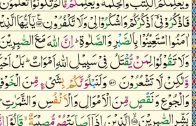 فَاذْكُرُوْنِيْٓ اَذْكُرْكُمْ وَاشْكُرُوْا لِيْ وَلَا تَكْفُرُوْنِ ۝ يٰٓاَيُّهَا الَّذِيْنَ
اٰمَنُوا اسْتَعِيْنُوْا بِالصَّبْرِ وَالصَّلٰوةِ ؕ اِنَّ اللّٰهَ مَعَ الصّٰبِرِيْنَ ۝
وَلَا تَقُوْلُوْا لِمَنْ يُّقْتَلُ فِيْ سَبِيْلِ اللّٰهِ اَمْوَاتٌ ؕ بَلْ اَحْيَآءٌ
وَّلٰكِنْ لَّا تَشْعُرُوْنَ ۝ وَلَنَبْلُوَنَّكُمْ بِشَيْءٍ مِّنَ الْخَوْفِ
وَالْجُوْعِ وَنَقْصٍ مِّنَ الْاَمْوَالِ وَالْاَنْفُسِ وَالثَّمَرٰتِ ؕ